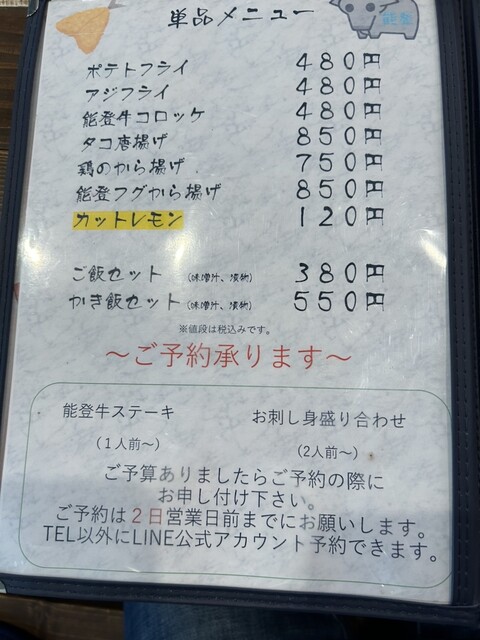 単品メニュー
能登
ポテトフライ 480円
アジフライ 480円
能登牛コロッケ 480円
タコ唐揚げ 850円
鶏のから揚げ 750円
能登フグから揚げ 850円
カットレモン 120円
ご飯セット (味噌汁、漬物) 380円
かき飯セット (味噌汁、漬物) 550円
※値段は税込みです。
～ご予約承ります～
能登牛ステーキ お刺し身盛り合わせ
(1人前～) (2人前～)
ご予算ありましたらご予約の際に
お申し付け下さい。
ご予約は2日営業日前までにお願いします。
TEL以外にLINE公式アカウント予約できます。